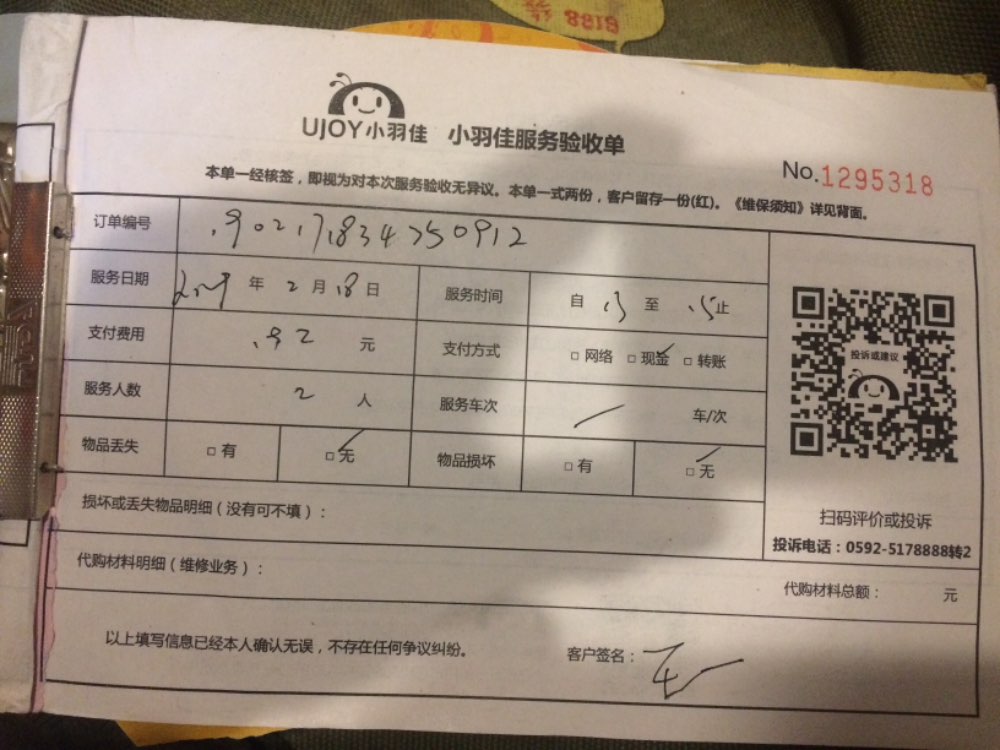 UJOY小羽佳 小羽佳服务验收单
No.1295318
本单一经核签，即视为对本次服务验收无异议。本单一式两份，客户留存一份(红)。《维保须知》详见背面。
订单编号
服务日期 年 2 月 18 日 服务时间 自 至 止
支付费用 192 元 支付方式 □ 网络 □ 现金 □ 转账
服务人数 2 人 服务车次 车/次
物品丢失 □ 有 □ 无 物品损坏 □ 有 □ 无
损坏或丢失物品明细（没有可不填）：
代购材料明细（维修业务）：
代购材料总额： 元
以上填写信息已经本人确认无误，不存在任何争议纠纷。
客户签名：
投诉或建议
扫码评价或投诉
投诉电话：0592-5178888转2